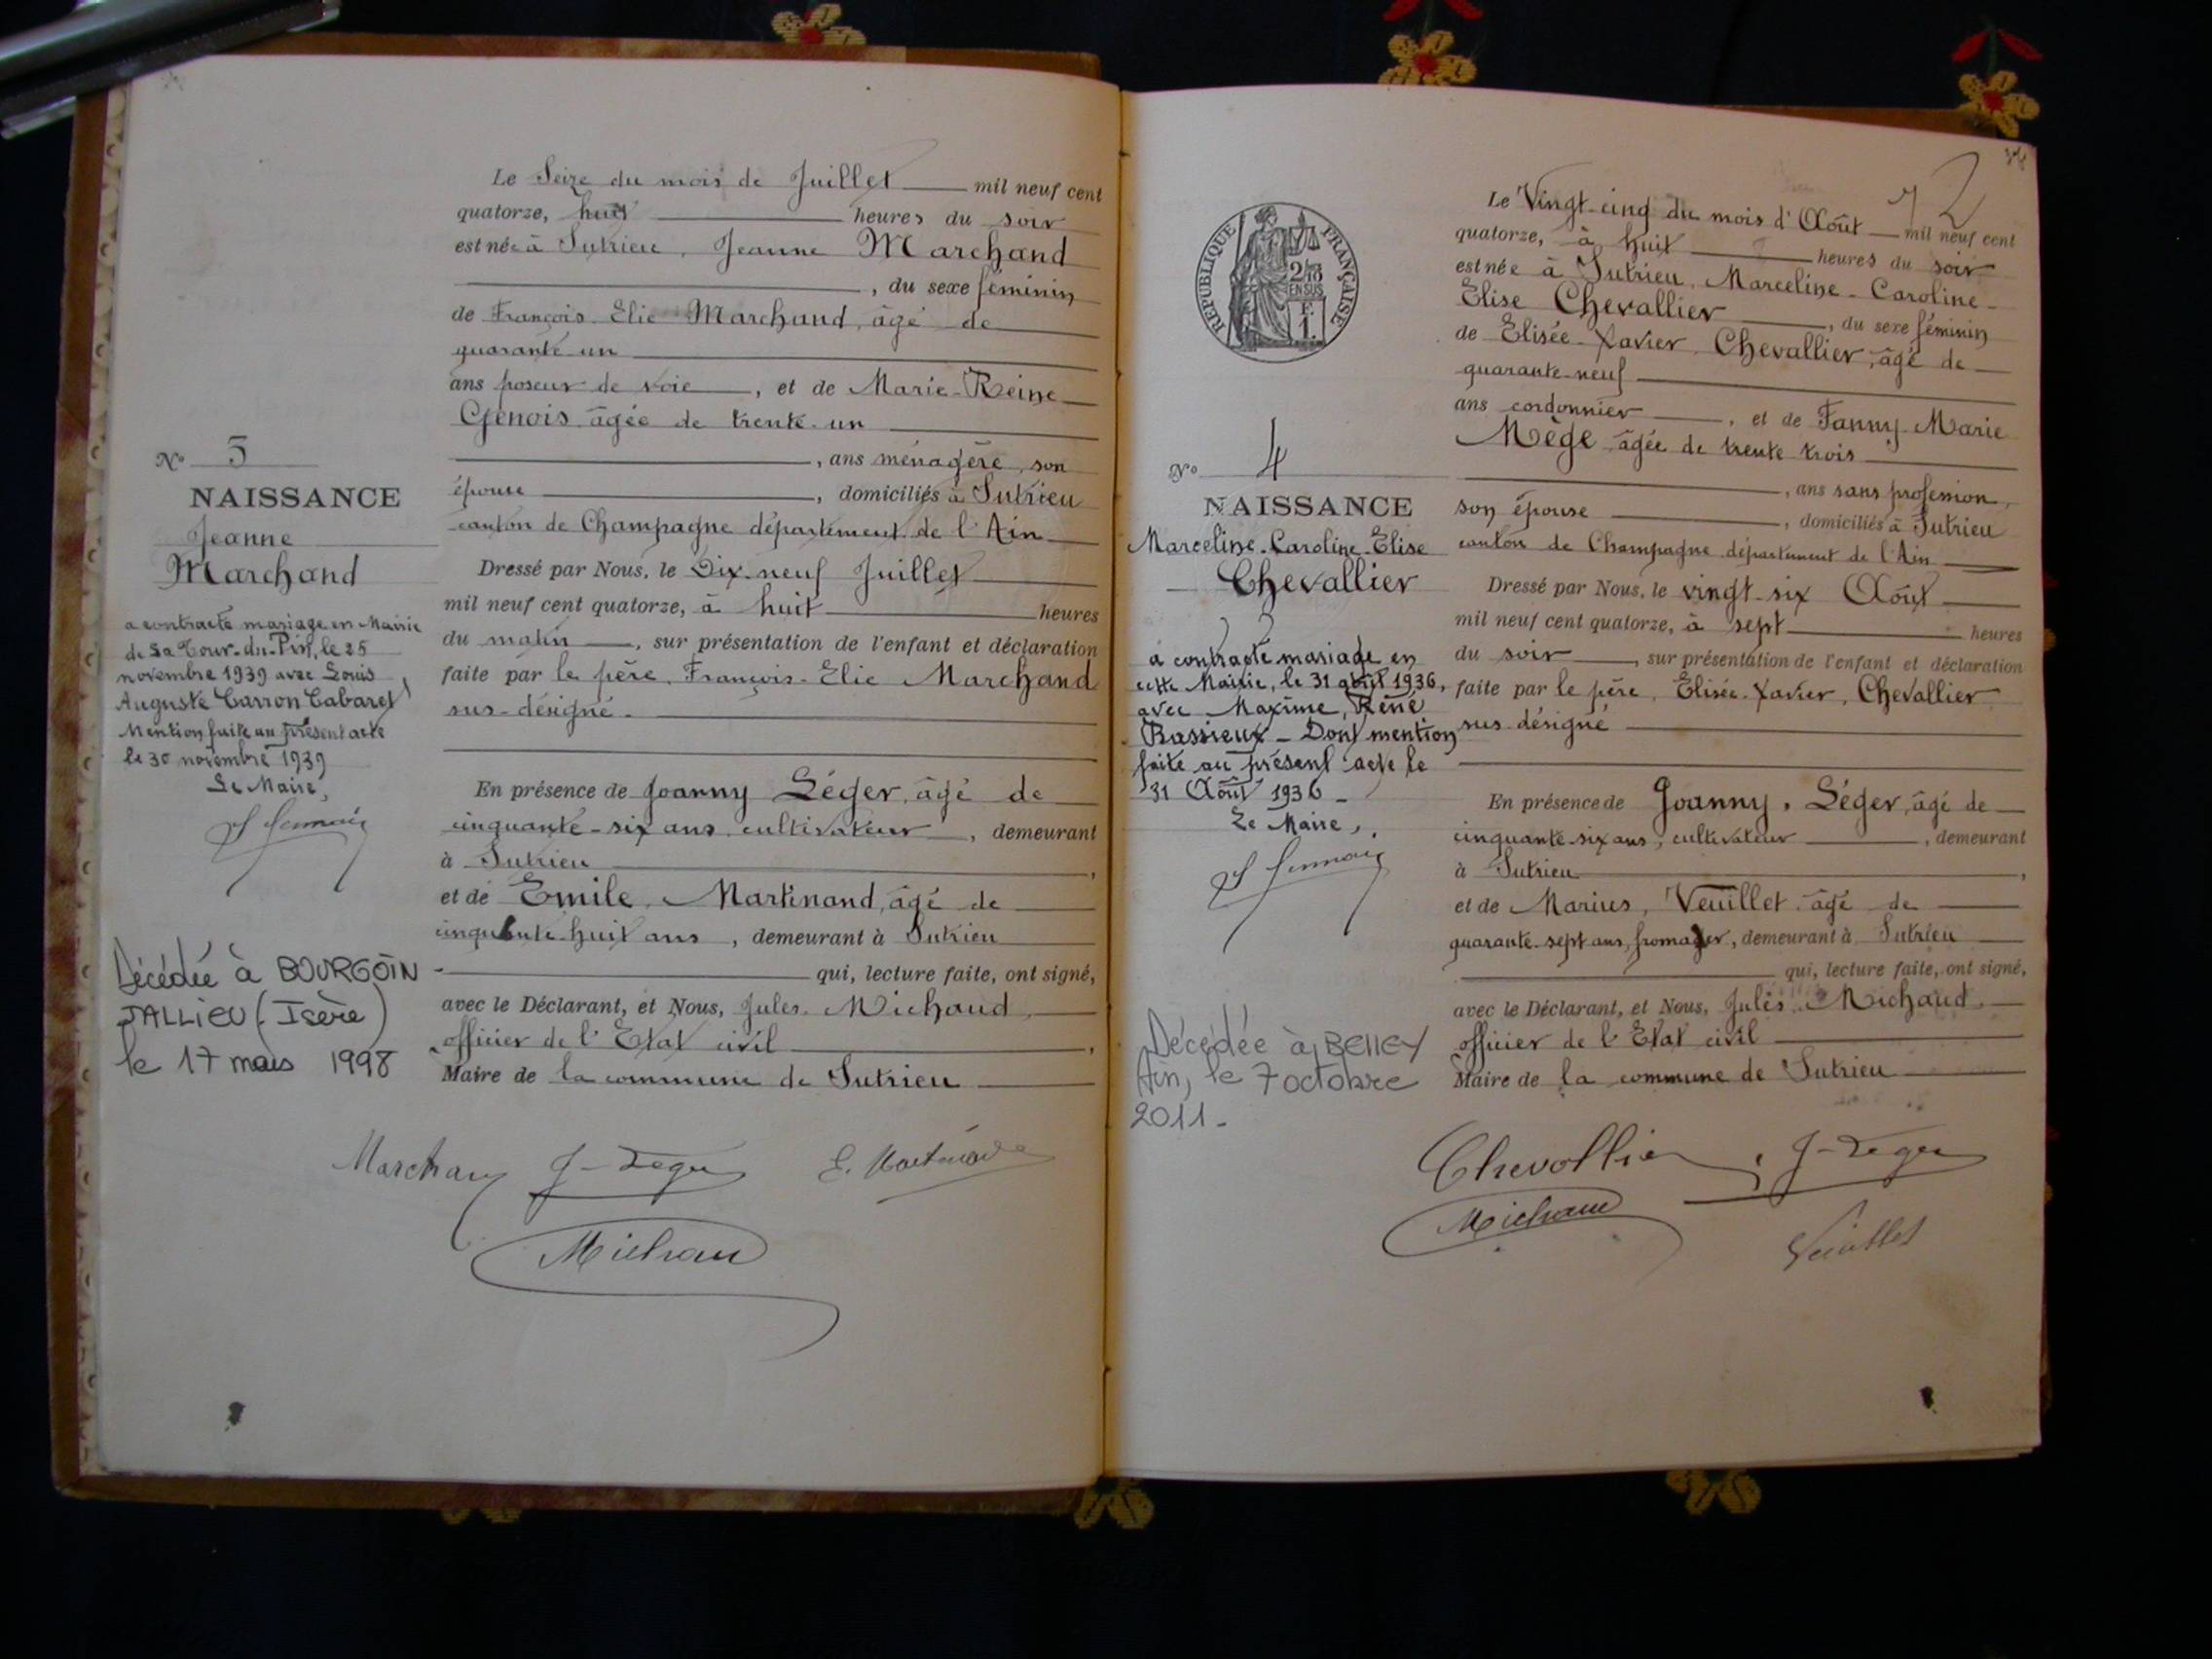 Le Seize du mois de Juillet mil neuf cent
quatorze, huit heures du soir
est née à Sutrieu, Jeanne Marchand
, du sexe féminin
de François Elie Marchand, âgé de
quarante un
ans poseur de voie, et de Marie-Reine
Genois âgée de trente un
, ans ménagère, son
épouse, domiciliés à Sutrieu
canton de Champagne département de l'Ain
Dressé par Nous, le Dix-neuf Juillet
mil neuf cent quatorze, à huit heures
du matin, sur présentation de l'enfant et déclaration
faite par le père, François-Elie Marchand
sus-désigné
En présence de Joanny Léger, âgé de
cinquante-six ans cultivateur, demeurant
à Sutrieu,
et de Emile Martinand, âgé de
cinquante-huit ans, demeurant à Sutrieu
qui, lecture faite, ont signé,
avec le Déclarant, et Nous, Jules Michaud
officier de l'Etat civil,
Maire de la commune de Sutrieu
Marchand J-Leger E. Martinand
Michaud
No 3
NAISSANCE
Jeanne
Marchand
a contracté mariage en Mairie
de La Tour-du-Pin, le 25
novembre 1939 avec Louis
Auguste Carron Cabaret
Mention faite au présent acte
le 30 novembre 1939
Le Maire,
Décédée à BOURGOIN
JALLIEU (Isère)
le 17 mars 1998
72
RÉPUBLIQUE FRANÇAISE
2/10
EN SUS
F.
1.
Le Vingt-cinq du mois d'Août mil neuf cent
quatorze, à huit heures du soir
est née à Sutrieu, Marceline-Caroline-
Elise Chevallier, du sexe féminin
de Elisée-Xavier Chevallier, âgé de
quarante-neuf
ans cordonnier, et de Fanny-Marie
Mège âgée de trente trois
, ans sans profession,
son épouse, domiciliés à Sutrieu
canton de Champagne département de l'Ain
Dressé par Nous, le vingt-six Août
mil neuf cent quatorze, à sept heures
du soir, sur présentation de l'enfant et déclaration
faite par le père, Elisée-Xavier, Chevallier
sus désigné
En présence de Joanny, Léger, âgé de
cinquante-six ans, cultivateur, demeurant
à Sutrieu,
et de Marius, Veuillet, âgé de
quarante-sept ans, fromager, demeurant à Sutrieu
qui, lecture faite, ont signé,
avec le Déclarant, et Nous, Jules Michaud
officier de l'Etat civil
Maire de la commune de Sutrieu
Chevallier J-Leger
Michaud Veuillet
No 4
NAISSANCE
Marceline-Caroline-Elise
Chevallier
a contracté mariage en
cette Mairie, le 31 1936,
avec Maxime, René
Bassieux - Dont mention
faite au présent acte le
31 Août 1936 -
Le Maire,
Décédée à BELLEY
Ain, le 7 octobre
2011.